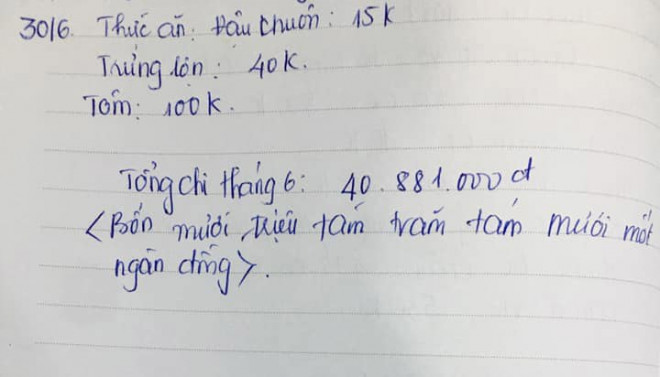 30/6. Thức ăn: Đầu chuôn: 15k
Trứng lộn: 40k.
Tôm: 100k.
Tổng chi tháng 6: 40.881.000đ
<Bốn mươi triệu tám trăm tám mươi mốt
ngàn đồng>.